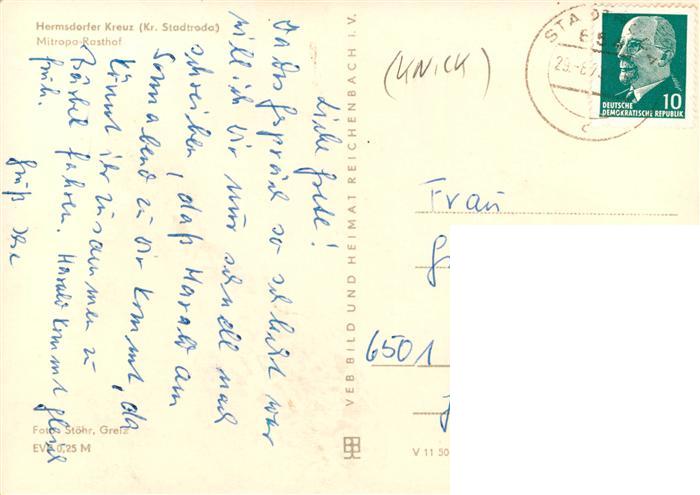 Hermsdorfer Kreuz (Kr. Stadtroda)
Mitropa-Rasthof
Liebe Grete!
Da das Gespräch so schlecht war
will ich Dir nur schnell mal
schreiben, daß Harald am
Sonnabend zu Dir kommt, da
könnt ihr zusammen zu
Bärbel fahren. Harald kommt gleich
früh.
Gruß
Foto: Stöhr, Greiz
EVP 0,25 M
VEB BILD UND HEIMAT REICHENBACH I. V.
V 11 50
(KNICK)
STA
65
29.-8.7
c
10
DEUTSCHE
DEMOKRATISCHE REPUBLIK
Frau
6501